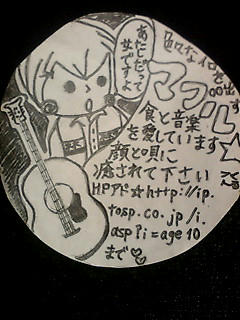 あたしだって
女ですよ
色々なイロを
出す
マブル☆
食と音楽
を愛しています
顔と唄に
癒されて下さい
HPアド☆http://ip.
tosp.co.jp/i.
asp?i=age10
まで